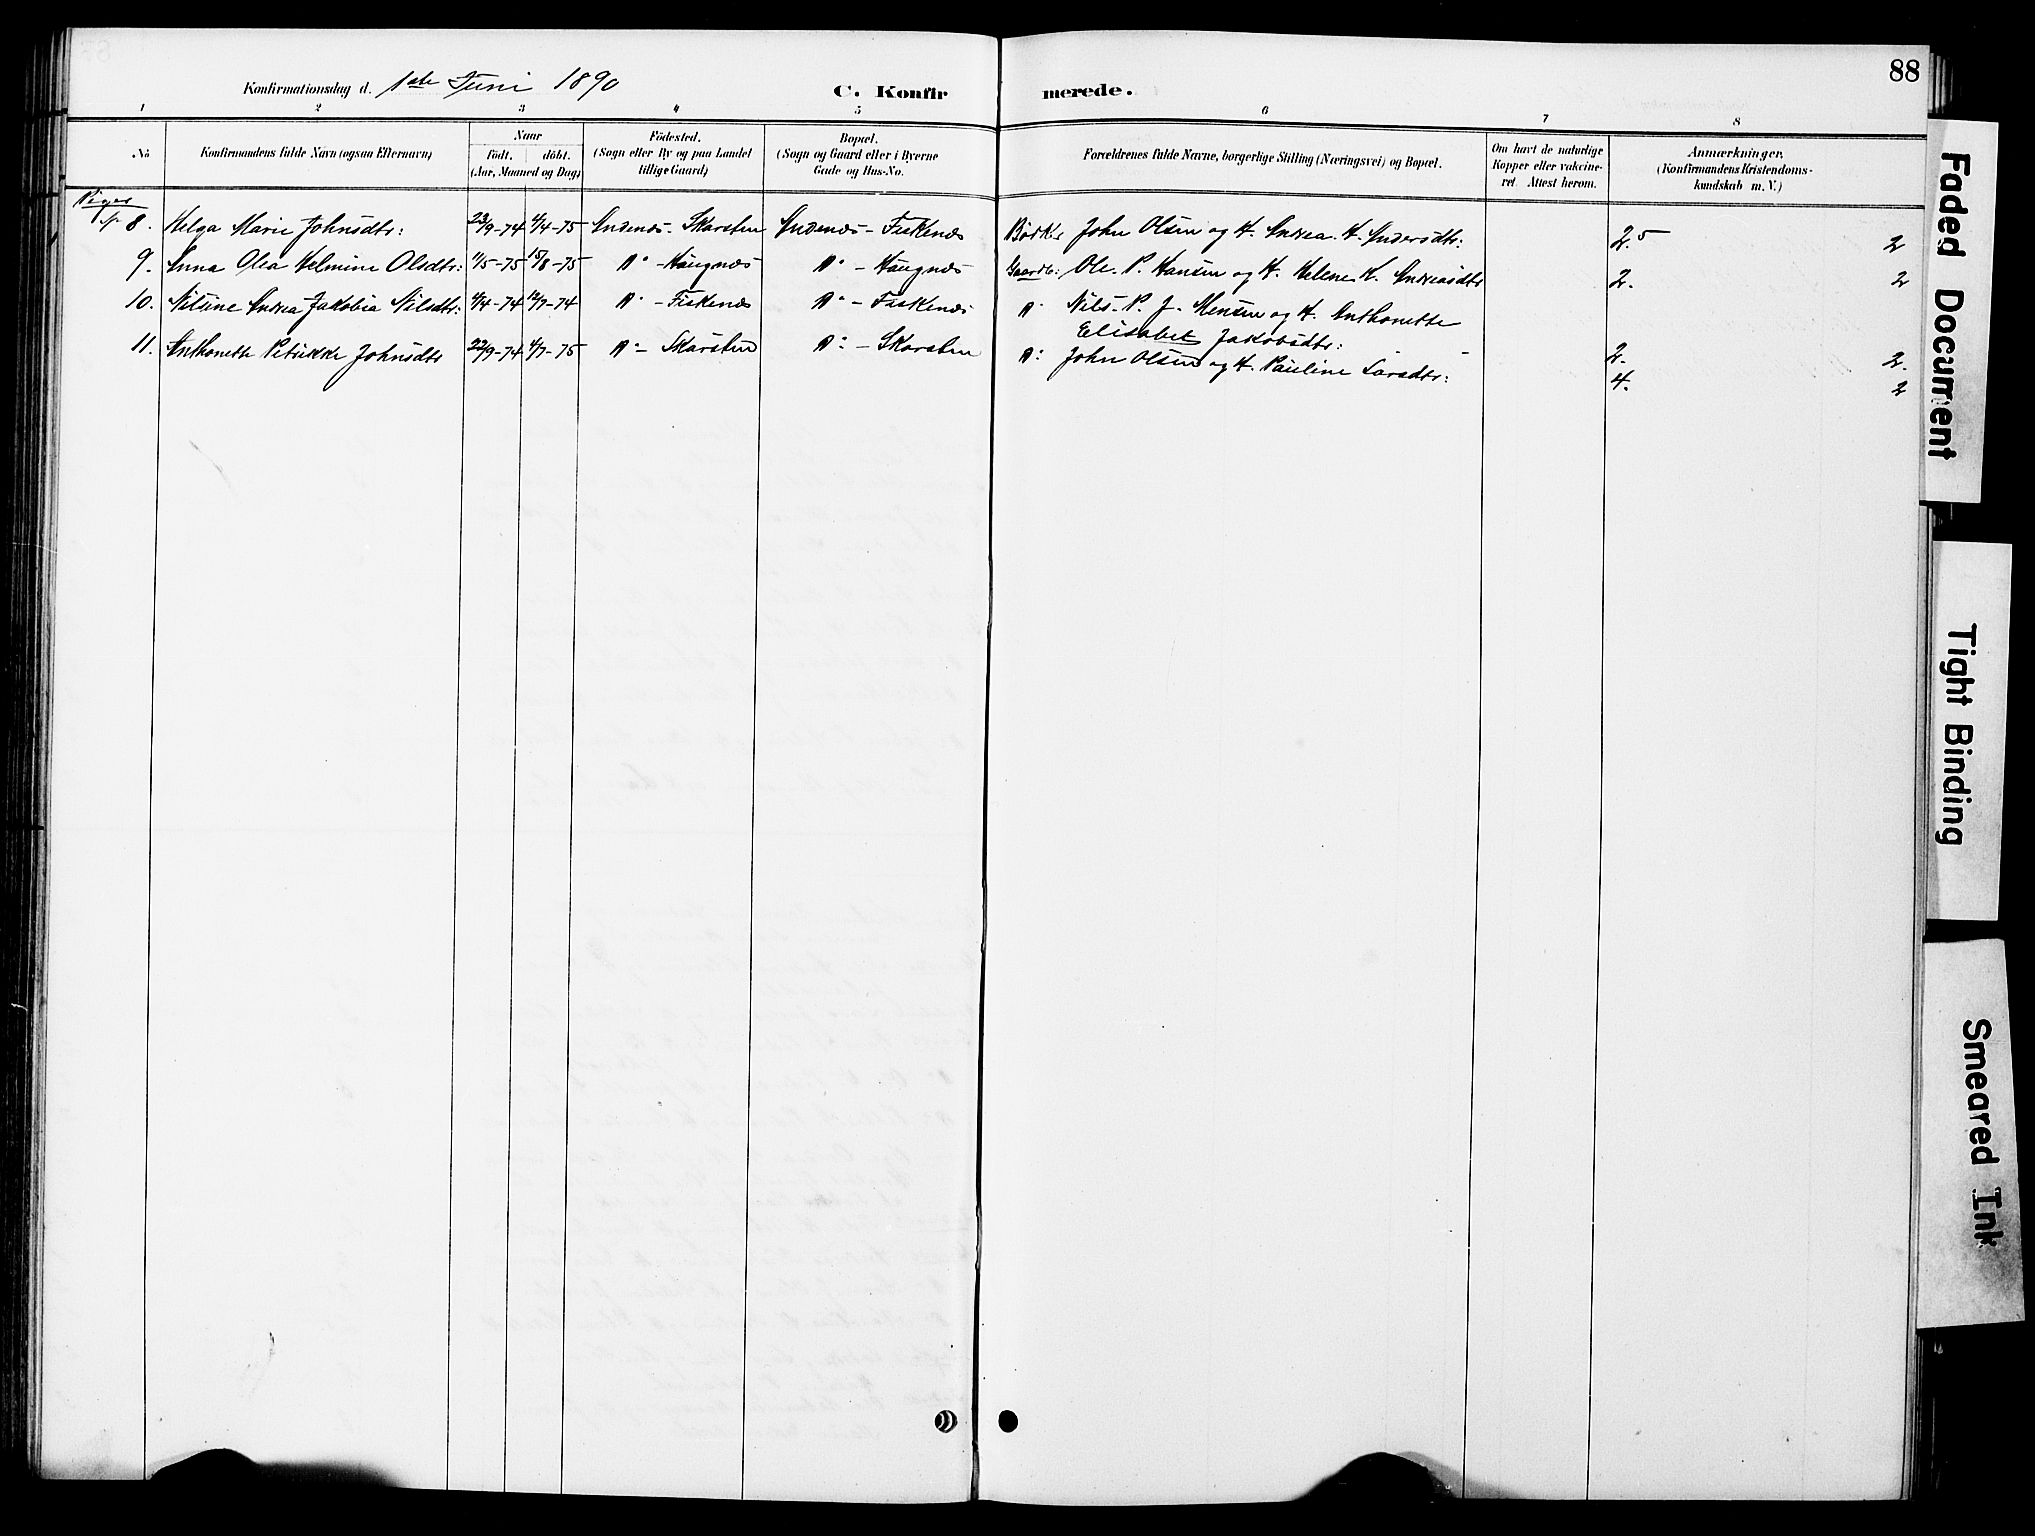 88
Konfirmationsdag d. 1ste Juni 1890
C. Konfirmerede.
1 2 3 4 5 6 7 8
No Konfirmandens fulde Navn (ogsaa Efternavn) Naar født. døbt. (Aar, Maaned og Dag) Fødested. (Sogn eller By og paa Landet tillige Gaard) Bopæl. (Sogn og Gaard eller i Byerne Gade og Hus-No. Forældrenes fulde Navne, borgerlige Stilling (Næringsvei) og Bopæl. Om havt de naturlige Kopper eller vakcineret. Attest herom. Anmærkninger. (Konfirmandens Kristendomskundskab m. V.)
Piger
8. Helga Marie Johnsdtr: 23/9-74 4/4-75 Andenæs - Skarsten Andenæs - Fiskenæs John Olsen og H. Andrea. H. Andersdtr: 2.5 2
9. Anna Olea Helmine Olsdtr: 11/5-75 15/8-75 D° - Haugnæs D° - Haugnæs Gaardb: Ole. P. Hansen og H. Helene H. Andreasdtr 2. 2
10. Nilsine Andrea Jakobia Nilsdtr: 4/4-74 12/7-74 D° - Fiskenæs D° - Fiskenæs D° Nils. P. J. Hensen og H. Anthonette
Elisabet Jakobsdtr: 2. 2.
11. Anthonette Petrikke Johnsdtr 22/9-74 4/7-75 D° - Skarsten D° - Skarsten D° John Olsen og H. Pauline Larsdtr: 4. 2
Faded Document
Tight Binding
Smeared Ink